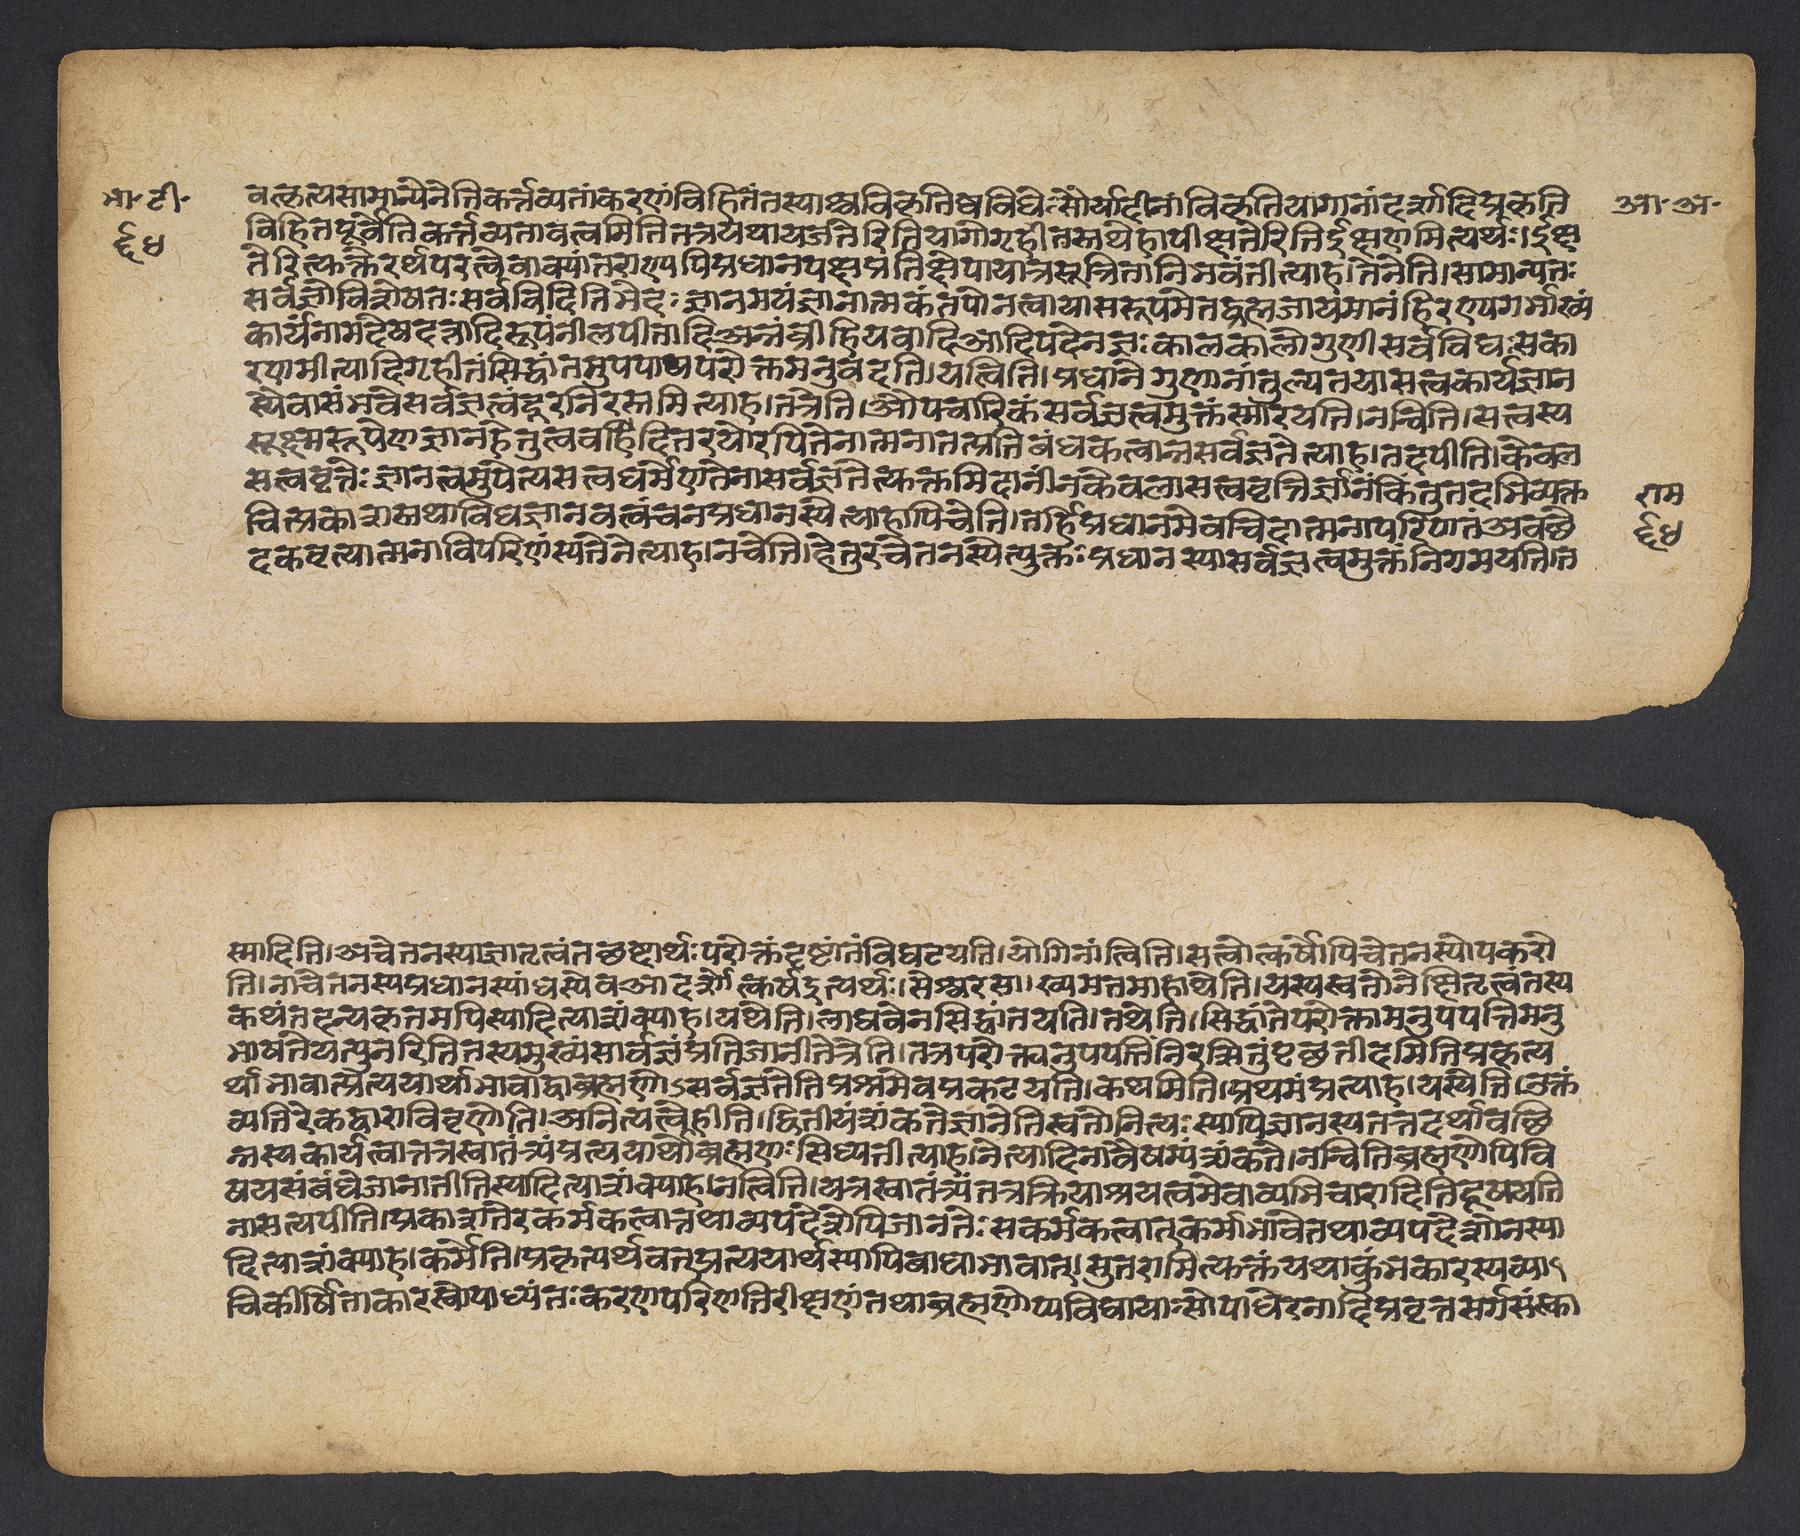 भा॰टी॰
६४
आ॰अ॰
वत्कृत्यसामान्येनेतिकर्त्तव्यतांकरणंविहितंतस्याश्चविकृतिष्वविधेःसौर्यादीनांविकृतियागानांदर्शादिप्रकृति
विहितपूर्वेतिकर्त्तव्यतावत्वमितितत्रयथायजतेरितियागोगृहीतस्तथेहापीक्षतेरितिईक्षणमित्यर्थः।ईक्ष
तेरित्युक्तेरर्थपरत्वेवाक्यांतराण्यपिप्रधानपक्षप्रतिक्षेपायात्रसूत्रितानिभवंतीत्याह।तेनेति।सामान्यतः
सर्वज्ञोविशेषतःसर्वविदितिभेदः ज्ञानमयंज्ञानात्मकंतपोनत्वायासरूपमेतद्ब्रह्मजायमानंहिरण्यगर्भाख्यं
कार्यंनामदेवदत्तादिरूपंनीलपीतादिअन्नंव्रीहियवादिआदिपदेनज्ञः कालकालोगुणीसर्वविद्यःसका
रणमीत्यादिगृहीतंसिद्धांतमुपपाद्यपरोक्तमनुवदति।यत्विति।प्रधानेगुणानांतुल्यतयासत्वकार्यज्ञान
स्यैवासंभवेसर्वज्ञत्वंदूरनिरस्तमित्याह।तत्रेति।औपचारिकंसर्वज्ञत्वमुक्तंस्मारयति।नन्विति।सत्वस्य
सूक्ष्मरूपेणज्ञानहेतुत्ववर्हिदितरयोरपितेनात्मनातत्प्रतिबंधकत्वान्नसर्वज्ञतेत्याह।तदपीति।केवल
सत्ववृत्तेः ज्ञानत्वमुपेत्यसत्वधर्मेणतेनासर्वज्ञतेत्युक्तमिदानींनकेवलासत्ववृत्तिर्ज्ञानंकिंतुतदभिव्यक्त
चित्प्रकाशस्तथाविधज्ञानवत्वंचनप्रधानस्येत्याहापिचेति।तर्हिप्रधानमेवचिदात्मनापरिणतंअवच्छे
दकवृत्यात्मनाविपरिणंस्यतेनेत्याह।नचेति।हेतुरचेतनस्येत्युक्तः प्रधानस्यासर्वज्ञत्वमुक्तंनिगमयति।त
राम
६४
स्मादिति।अचेतनस्याज्ञातृत्वंतच्छब्दार्थः परोक्तंदृष्टांतंविघटयति।योगिनांत्विति।सत्वोत्कर्षोपिचेतनस्योपकरो
ति।नाचेतनस्यप्रधानस्यांधस्येवआदर्शोत्कर्षइत्यर्थः।सेश्वरसां।ख्यमतमाहाथेति।यस्यस्वतोनेक्षितृत्वंतस्य
कथंतदन्यकृतमपिस्यादित्याशंक्याह।यथेति।लाघवेनसिद्धांतयति।तथेति।सिद्धांतेपरोक्तामनुपपत्तिमनु
भाषतेयत्पुनरितितस्यमुख्यंसार्वज्ञंप्रतिजानीतेत्रेति।तत्रपरोक्त्यनुपपत्तिंनिरसितुंपृच्छतीदमितिप्रकृत्य
र्थाभावात्प्रत्ययार्थाभावाद्वाब्रह्मणोऽसर्वज्ञतेतिप्रश्नमेवप्रकटयति।कथमिति।प्रथमंप्रत्याह।यस्येति।उक्तं
व्यतिरेकद्वाराविवृणोति।अनित्यत्वेहीति।द्वितीयंशंकतेज्ञानेतिस्वतोनित्यः स्यापिज्ञानस्यतत्तदर्थावच्छि
न्नस्यकार्यत्वात्तत्रस्वातंत्र्यंप्रत्ययार्थोब्रह्मणः सिध्यतीत्याह।नेत्यादिनावैषम्यंशंकते।नन्वितिब्रह्मणोपिवि
षयसंबंधेजानातीतिस्यादित्याशंक्याह।नत्विति।यत्रस्वातंत्र्यंतत्रक्रियाश्रयत्वमेवाव्यभिचारादितिदूषयति
नासत्यपीति।प्रकाशतेरकर्मकत्वात्तथाव्यपदेशेपिजानतेः सकर्मकत्वात्कर्माभावेतथाव्यपदेशोनस्या
दित्याशंक्याह।कर्मेति।प्रकृत्यर्थवत्प्रत्ययार्थस्यापिबाधाभावात्।सुतरामित्युक्तंयथाकुंभकारस्यव्या॰
चिकीर्षिताकारस्वोपाध्यंतःकरणपरिणतिरीक्षणंतथाब्रह्मणोप्यविद्यायाःसोपाधेरनादिप्रवृत्तसर्गसंस्का